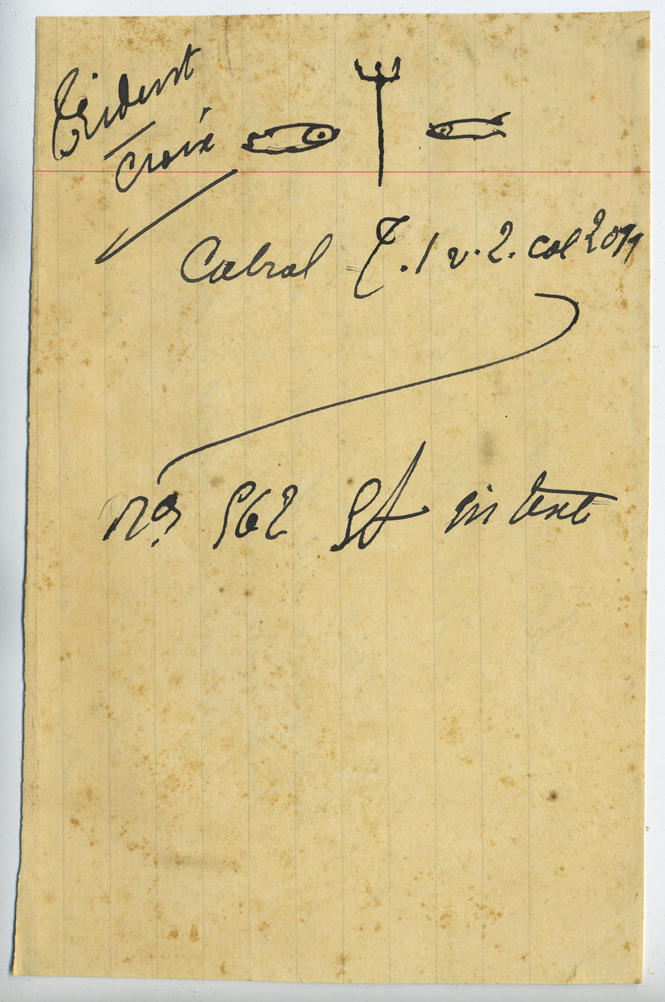 Trident
Croix
Cabrol T. 1 v. 2. col 2099
nos 962 St in text